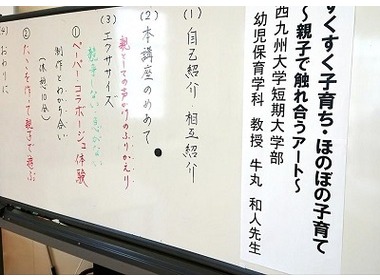 すくすく子育ち・ほのぼの子育て
～親子で触れ合うアート～
西九州大学短期大学部
幼児保育学科 教授 牛丸 和人先生
(1) 自己紹介 相互紹介
(2) 本講座のめあて
親としての声かけのふりかえり
(3) エクササイズ
競争しない 急がない
① ペーパーコラボージュ体験
制作とわかち合い
(休憩10分)
② たこを作って親子で遊ぶ
(4) おわりに